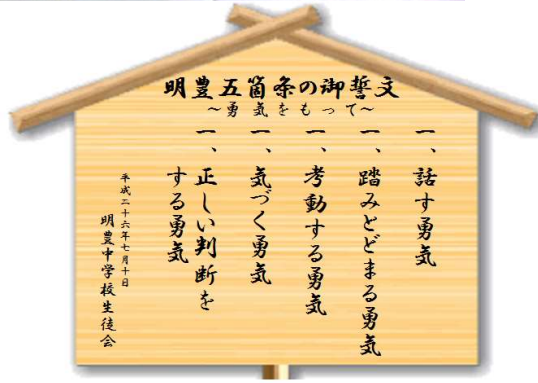 明豊五箇条の御誓文
～勇気をもって～
一、話す勇気
一、踏みとどまる勇気
一、考動する勇気
一、気づく勇気
一、正しい判断を
する勇気
平成二十六年七月十日
明豊中学校生徒会